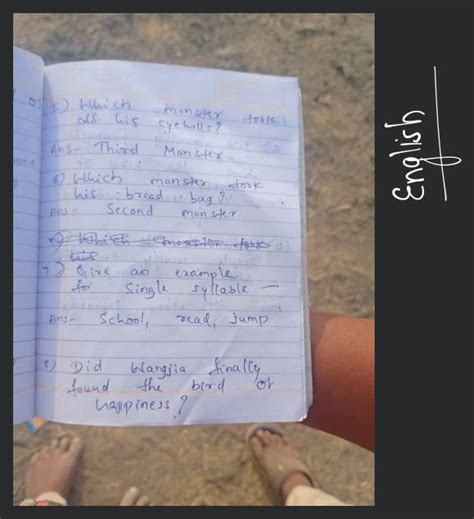 5) Which monster took
off his eyeballs?
Ans- Third Monster
6) Which monster took
his bread bag?
Ans- Second monster
8) Which monster took
his
7) Give an example
for Single syllable -
Ans- School, read, Jump
8) Did Wangjia finally
found the bird of
happiness?
English